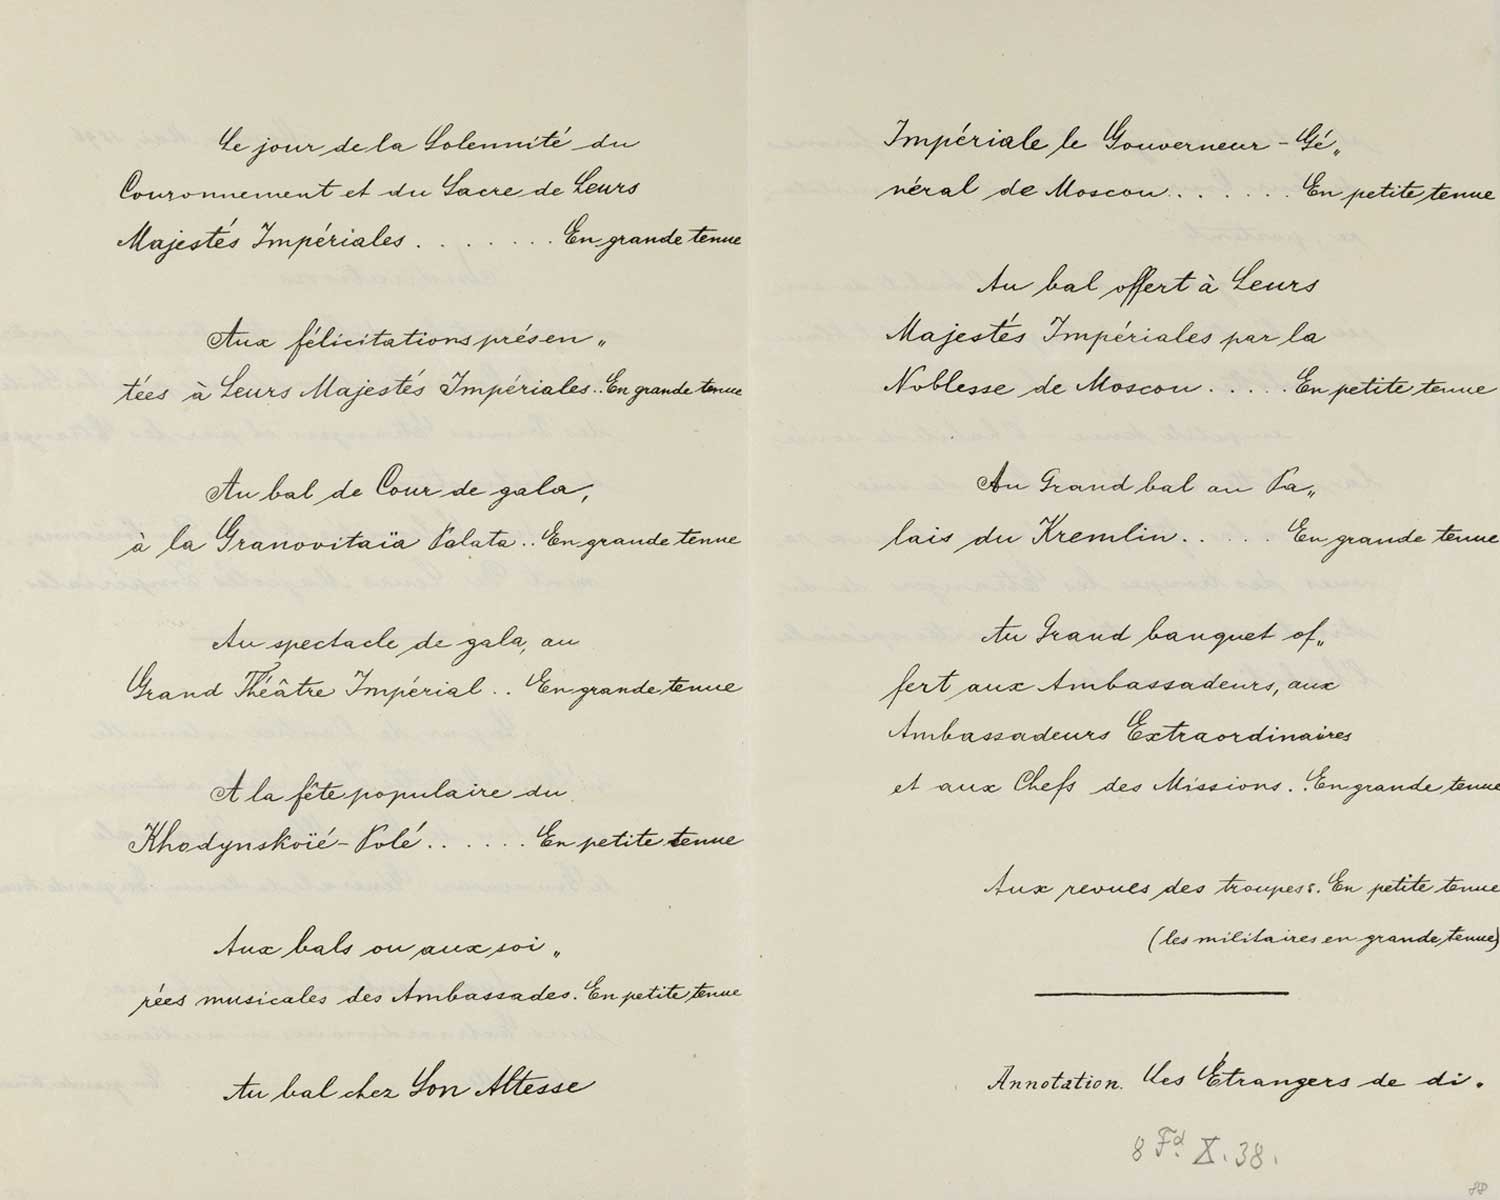 Le jour de la Solennité du
Couronnement et du Sacre de Leurs
Majestés Impériales . . . . . . . . En grande tenue
Aux félicitations présen„
tées à Leurs Majestés Impériales . . En grande tenue
Au bal de Cour de gala,
à la Granovitaïa Palata . . En grande tenue
Au spectacle de gala, au
Grand Théâtre Impérial . . En grande tenue
A la fête populaire du
Khodynskoïé-Polé . . . . . . En petite tenue
Aux bals ou aux soi„
rées musicales des Ambassades. En petite tenue
Au bal chez Son Altesse
Impériale le Gouverneur-Gé„
néral de Moscou . . . . . . En petite tenue
Au bal offert à Leurs
Majestés Impériales par la
Noblesse de Moscou . . . . . En petite tenue
Au Grand bal au Pa„
lais du Kremlin . . . . . En grande tenue
Au Grand banquet of„
fert aux Ambassadeurs, aux
Ambassadeurs Extraordinaires
et aux Chefs des Missions . . En grande tenue
Aux revues des troupes . . En petite tenue
(les militaires en grande tenue)
Annotation. Les Etrangers de di„
8 Fd. X. 38.